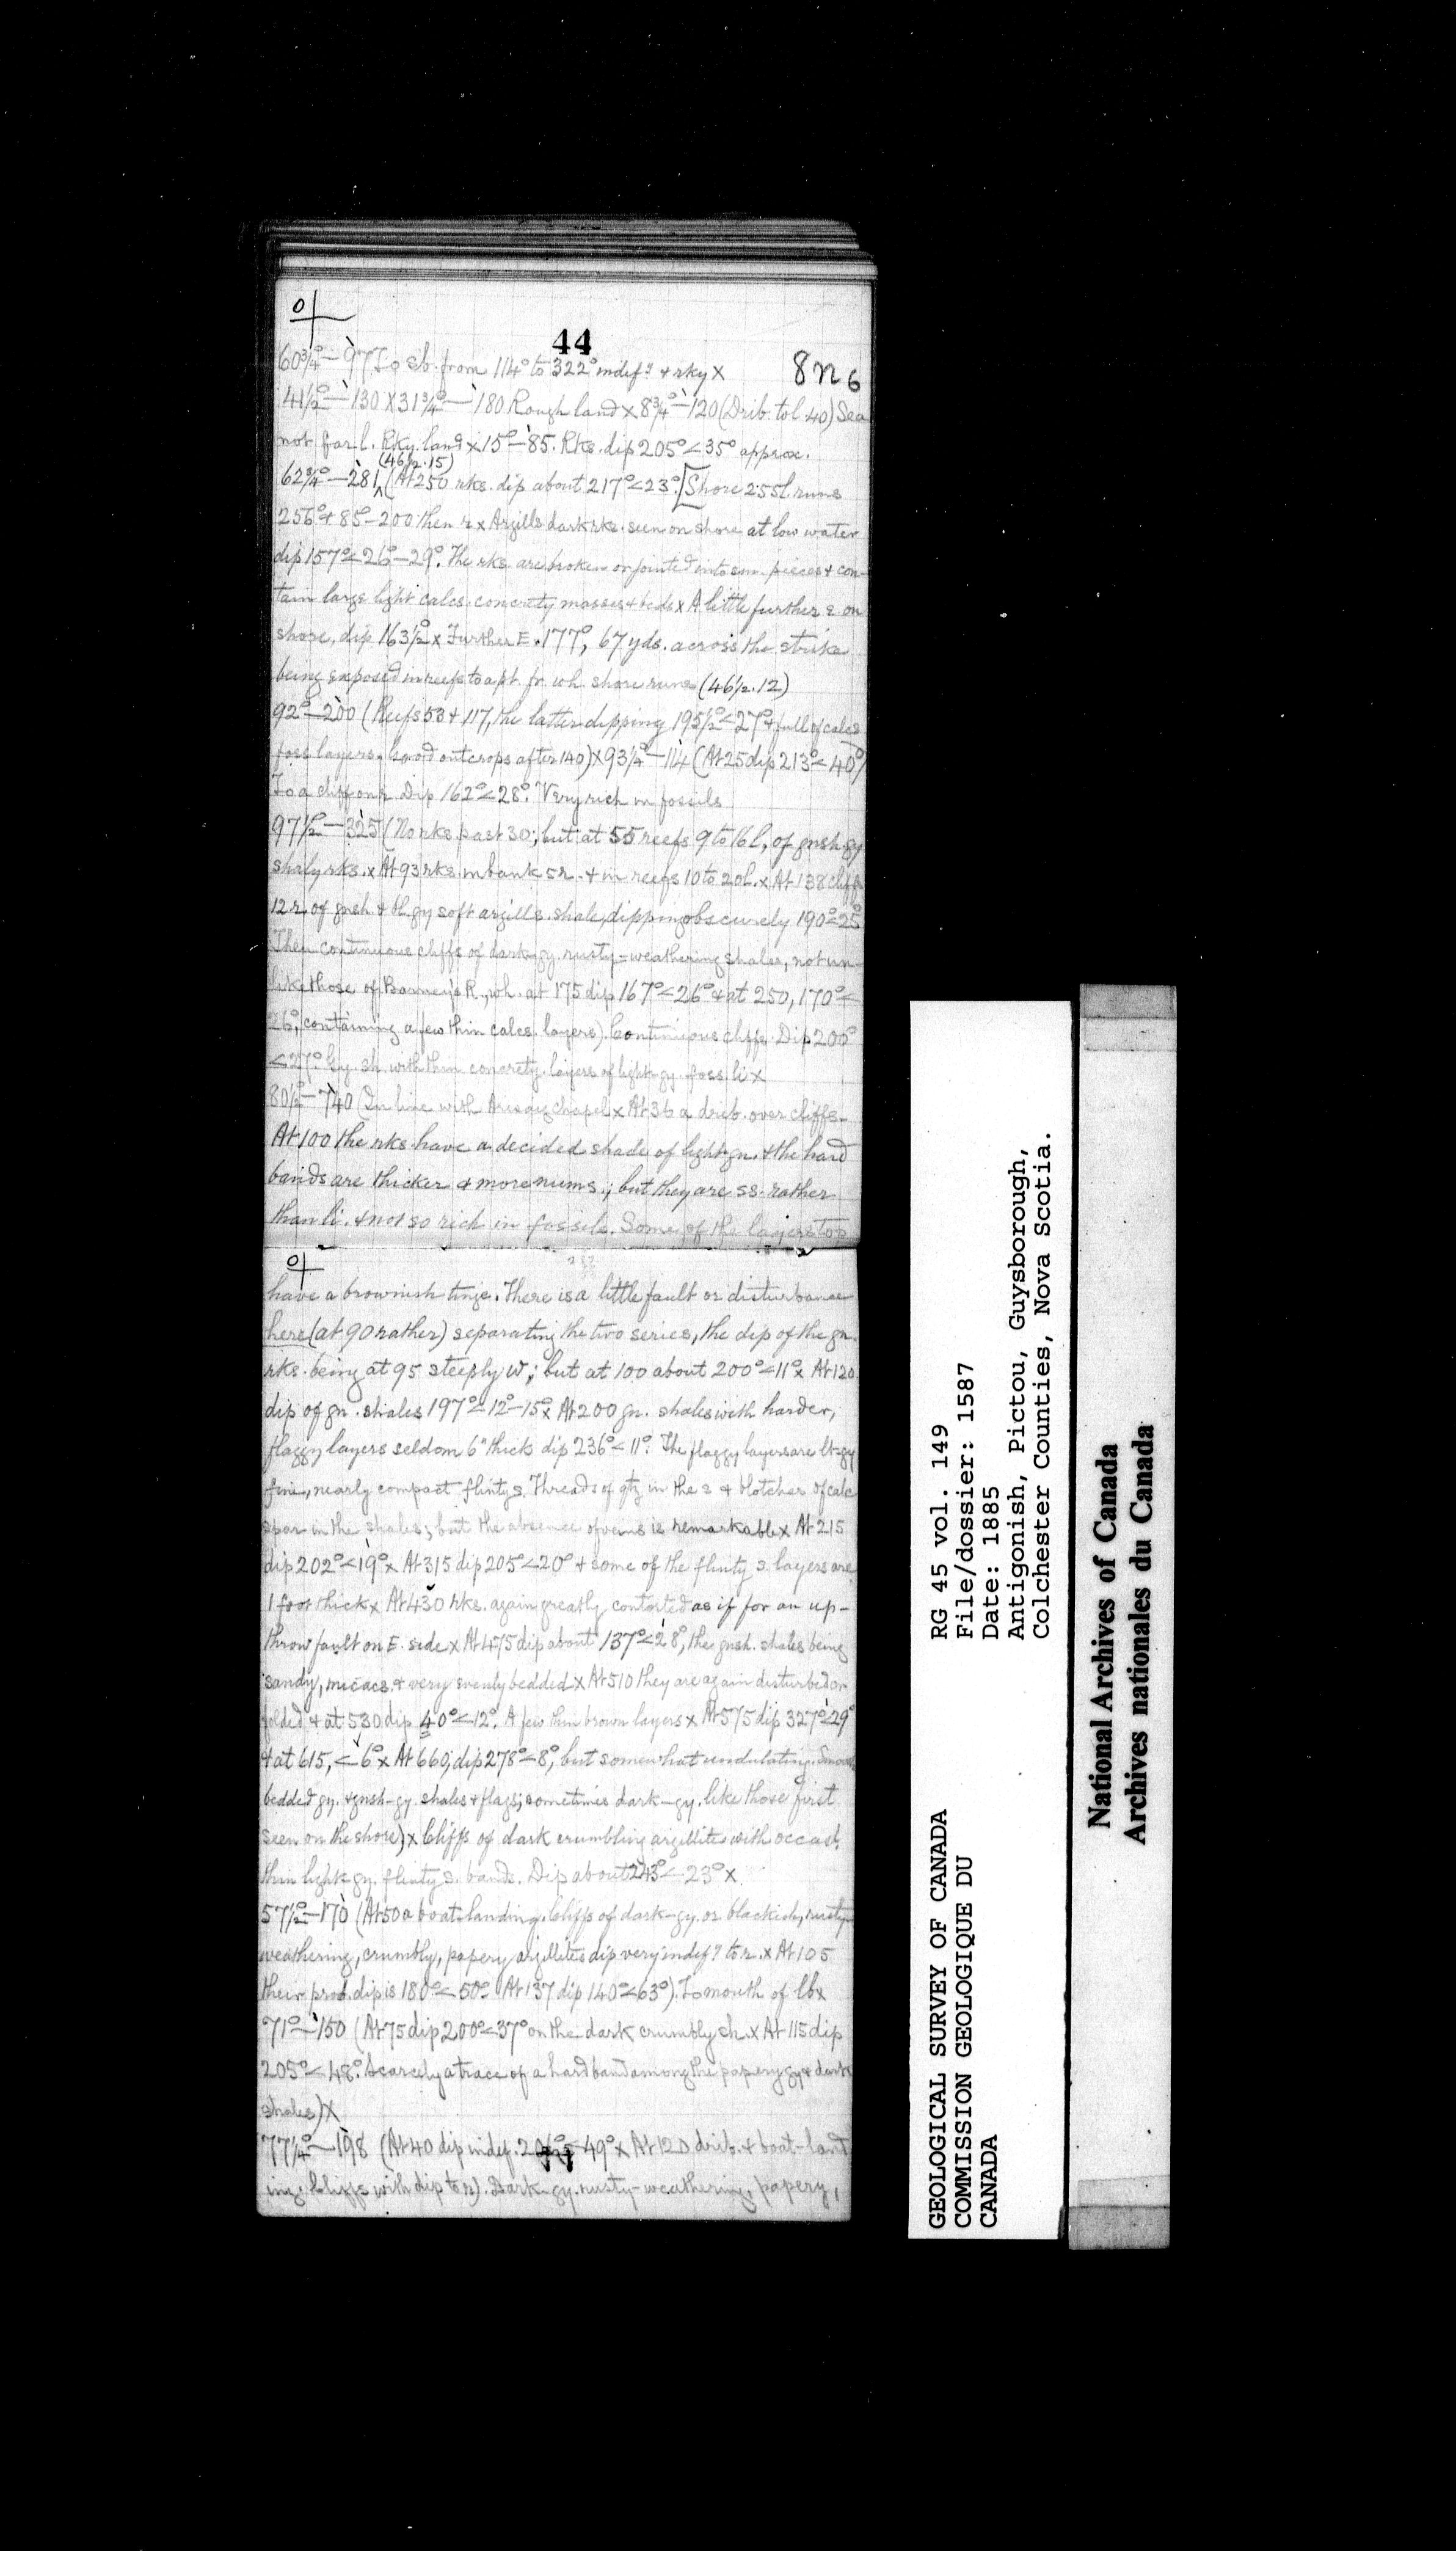 44
8n6
60¾°—97 To sb. from 114° to 322° indef. & rky x
41½°—130 x 31¾°—180 Rough land x 8¾°—120 (Drib. to l. 40) Sea
not far l. Rky. land x 15°—85. Rks. dip 205°<35° approx.
(46½.15)
62¾°—281 (At 250 rks. dip about 217°<23°. [Shore 255 l. runs
256° & 85°—200 then r x Argills. dark rks. seen on shore at low water
dip 157°<26°—29°. The rks. are broken or jointed into sm. pieces & con-
tain large light calcs. concrety masses & beds x A little further E on
shore, dip 163½° x Further E. 177°, 67 yds. across the strike
being exposed in reefs to a pt. fr. wh. shore runs (46½.12)
92°—200 (Reefs 53 & 117, the latter dipping 195½°<27° & full of calcs
foss layers. Good outcrops after 140) x 93¼°—114 (At 25 dip 213°<40°)
To a cliff on r. Dip 162°<28°. Very rich in fossils
97½°—325 (No rks. past 30; but at 55 reefs 9 to 16 l, of gnsh-gy
shaly rks. x At 93 rks. in bank 5 r. & in reefs 10 to 20 l. x At 138 cliffs
12 r. of gnsh & gy soft argills. shale, dipping obscurely 190°<25°
Then continuous cliffs of dark-gy. rusty-weathering shales, not un-
like those of Barney's R., wh. at 175 dip 167°<26° & at 250, 170°<
26°, containing a few thin calcs. layers). Continuous cliffs. Dip 200°
<27°. Gy. sh. with thin concrety. layers of light-gy. foss. li x
80½°—740 (In line with Arisaig chapel x At 36 a drib. over cliffs.
At 100 the rks. have a decided shade of light-gn. & the hard
bands are thicker & more nums.; but they are ss. rather
than li. & not so rich in fossils. Some of the layers top
have a brownish tinge. There is a little fault or disturbance
here (at 90 rather) separating the two series, the dip of the gn.
rks. being at 95 steeply W; but at 100 about 200°<11° x At 120
dip of gn. shales 197°<12°—15° x At 200 gn. shales with harder,
flaggy layers seldom 6" thick dip 236°<11°. The flaggy layers are lt-gy
fine, nearly compact flinty s. Threads of qtz in the s & blotches of calc
spar in the shales; but the absence of veins is remarkable x At 215
dip 202°<19° x At 315 dip 205°<20° & some of the flinty s. layers are
1 foot thick x At 430 rks. again greatly contorted as if for an up-
throw fault on E. side x At 475 dip about 137°<28°, the gnsh. shales being
sandy, micacs. & very evenly bedded x At 510 they are again disturbed or
folded & at 530 dip 40°<12°. A few thin brown layers x At 575 dip 327°<29°
& at 615, <6° x At 660, dip 278°<8°, but somewhat undulating. Smooth
bedded gy. & gnsh-gy shales & flags; sometimes dark-gy. like those first
seen on the shore) x Cliffs of dark crumbling argillites with occasl.
thin light-gy. flinty s. bands. Dip about 243°<23° x
57½°—170 (At 50 a boat-landing. Cliffs of dark-gy. or blackish, rusty-
weathering, crumbly, papery argillites dip very indef. to r. x At 105
their prob. dip is 180°<50°. At 137 dip 140°<63°). To mouth of lbx
71°—150 (At 75 dip 200°<37° on the dark crumbly sh. x At 115 dip
205°<48°. Scarcely a trace of a hard band among the papery gy & dark
shales) x
77¼°—198 (At 40 dip indef. 49° x At 120 drib. & boat-land
ing. Cliffs with dip to r). Dark-gy. rusty-weathering, papery,
GEOLOGICAL SURVEY OF CANADA
COMMISSION GEOLOGIQUE DU
CANADA
RG 45 vol. 149
File/dossier: 1587
Date: 1885
Antigonish, Pictou, Guysborough,
Colchester Counties, Nova Scotia.
National Archives of Canada
Archives nationales du Canada